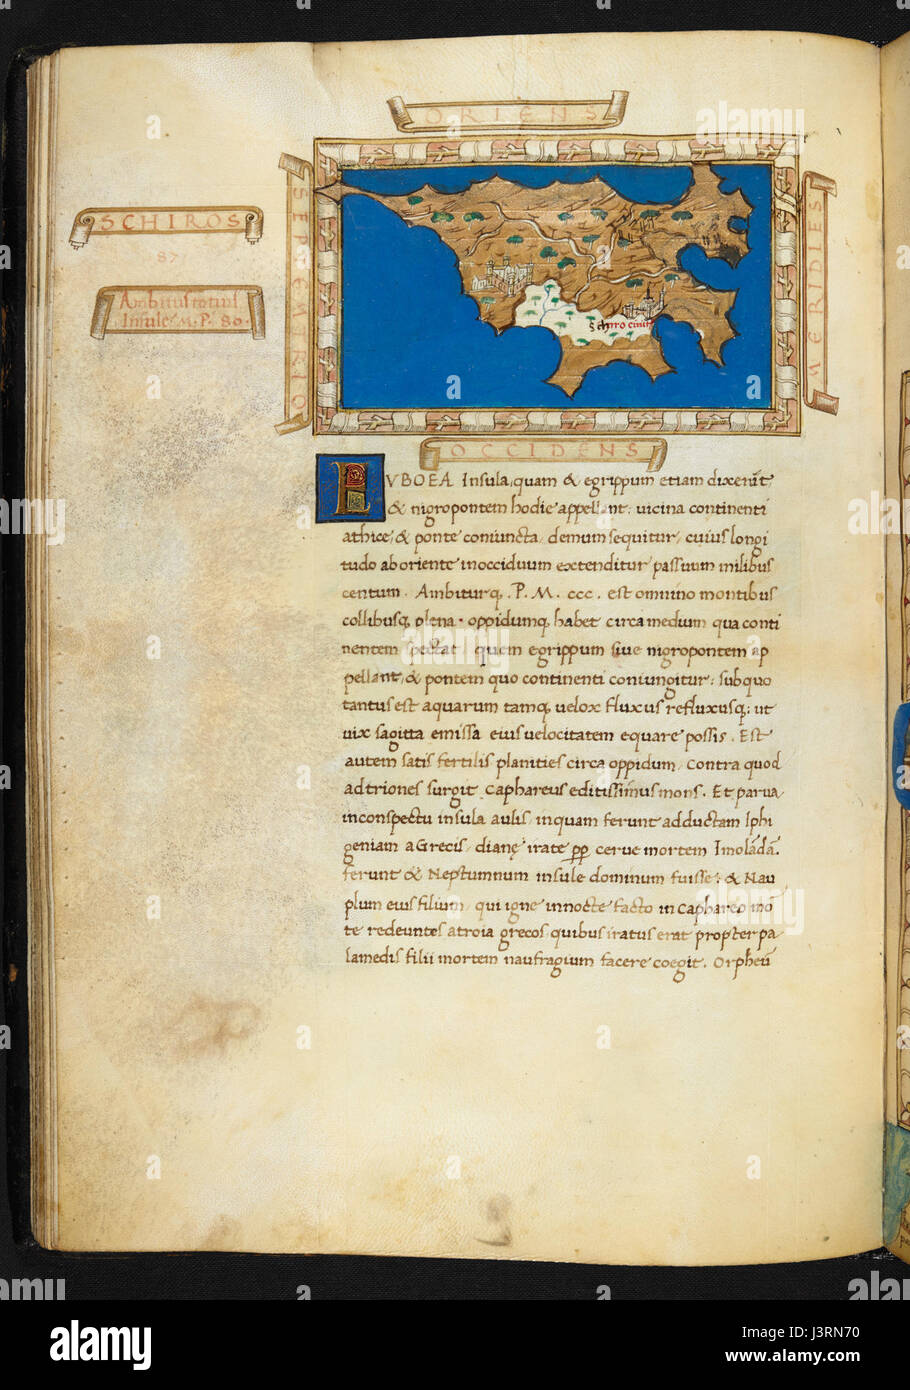 ORIENS
SCHIROS
87
Ambitus totius
Insule. M. P. 80.
SEPTEMTRIO
MERIDIES
Schiro civit
OCCIDENS
EVBOEA Insula, quam & egrippum etiam dixerūt
& nigropontem hodie appellant: uicina continenti
athice, & ponte coniuncta, demum sequitur, cuius longi
tudo ab oriente in occiduum extenditur passuum milibus
centum. Ambiturq, P. M. ccc. est omnino montibus
collibusq, plena. oppidumq, habet circa medium qua conti
nentem spectat, quem egrippum siue nigropontem ap
pellant, & pontem quo continenti coniungitur: sub quo
tantus est aquarum tamq, uelox fluxus refluxusq: ut
uix sagitta emissa eius uelocitatem equare possis. Est
autem satis fertilis planities circa oppidum, contra quod
ad triones surgit Caphareus editissimus mons. Et parua
in conspectu insula aulis, in quam ferunt adductam Iphi
geniam a Grecis, dianę irate pp cerue mortem Imolādā.
ferunt & Neptumnum insule dominum fuisse: & Nau
plum eius filium, qui igne in nocte facto in caphareo mō
te redeuntes a troia grecos, quibus iratus erat propter pa
lamedis filii mortem naufragium facere coegit. Orpheū
alamy
a
alamy
Image ID: J3RN70
www.alamy.com